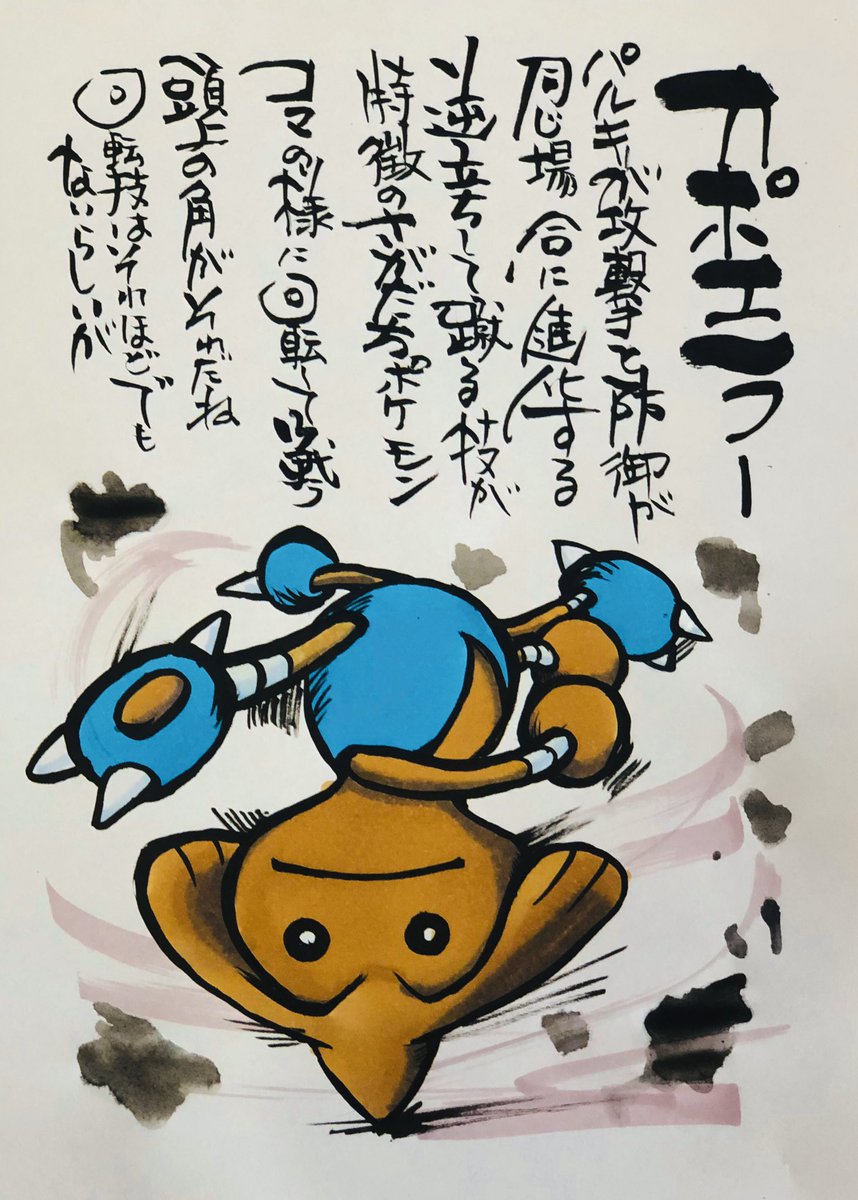 カポエラー
バルキーが攻撃と防御が
同じ場合に進化する
逆立ちして蹴る技が
特徴のさかだちポケモン
コマの様に回転して戦う
頭上の角がそれだね
回転技はそれほどでも
ないらしいが